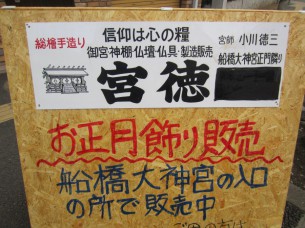 総檜手造り
信仰は心の糧
御宮・神棚・仏壇・仏具・製造販売
宮徳
宮師 小川徳三
船橋大神宮正門隣り
お正月飾り販売
船橋大神宮の入口
の所で販売中